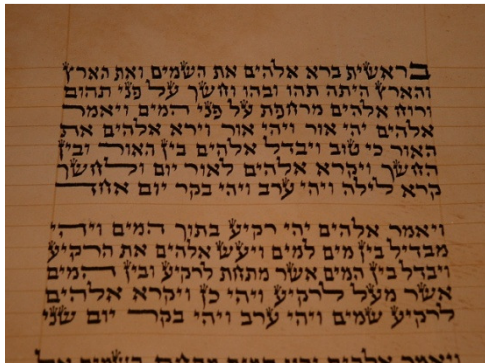 בראשית ברא אלהים את השמים ואת הארץ
והארץ היתה תהו ובהו וחשך על פני תהום
ורוח אלהים מרחפת על פני המים ויאמר
אלהים יהי אור ויהי אור וירא אלהים את
האור כי טוב ויבדל אלהים בין האור ובין
החשך ויקרא אלהים לאור יום ולחשך
קרא לילה ויהי ערב ויהי בקר יום אחד
ויאמר אלהים יהי רקיע בתוך המים ויהי
מבדיל בין מים למים ויעש אלהים את הרקיע
ויבדל בין המים אשר מתחת לרקיע ובין המים
אשר מעל לרקיע ויהי כן ויקרא אלהים
לרקיע שמים ויהי ערב ויהי בקר יום שני